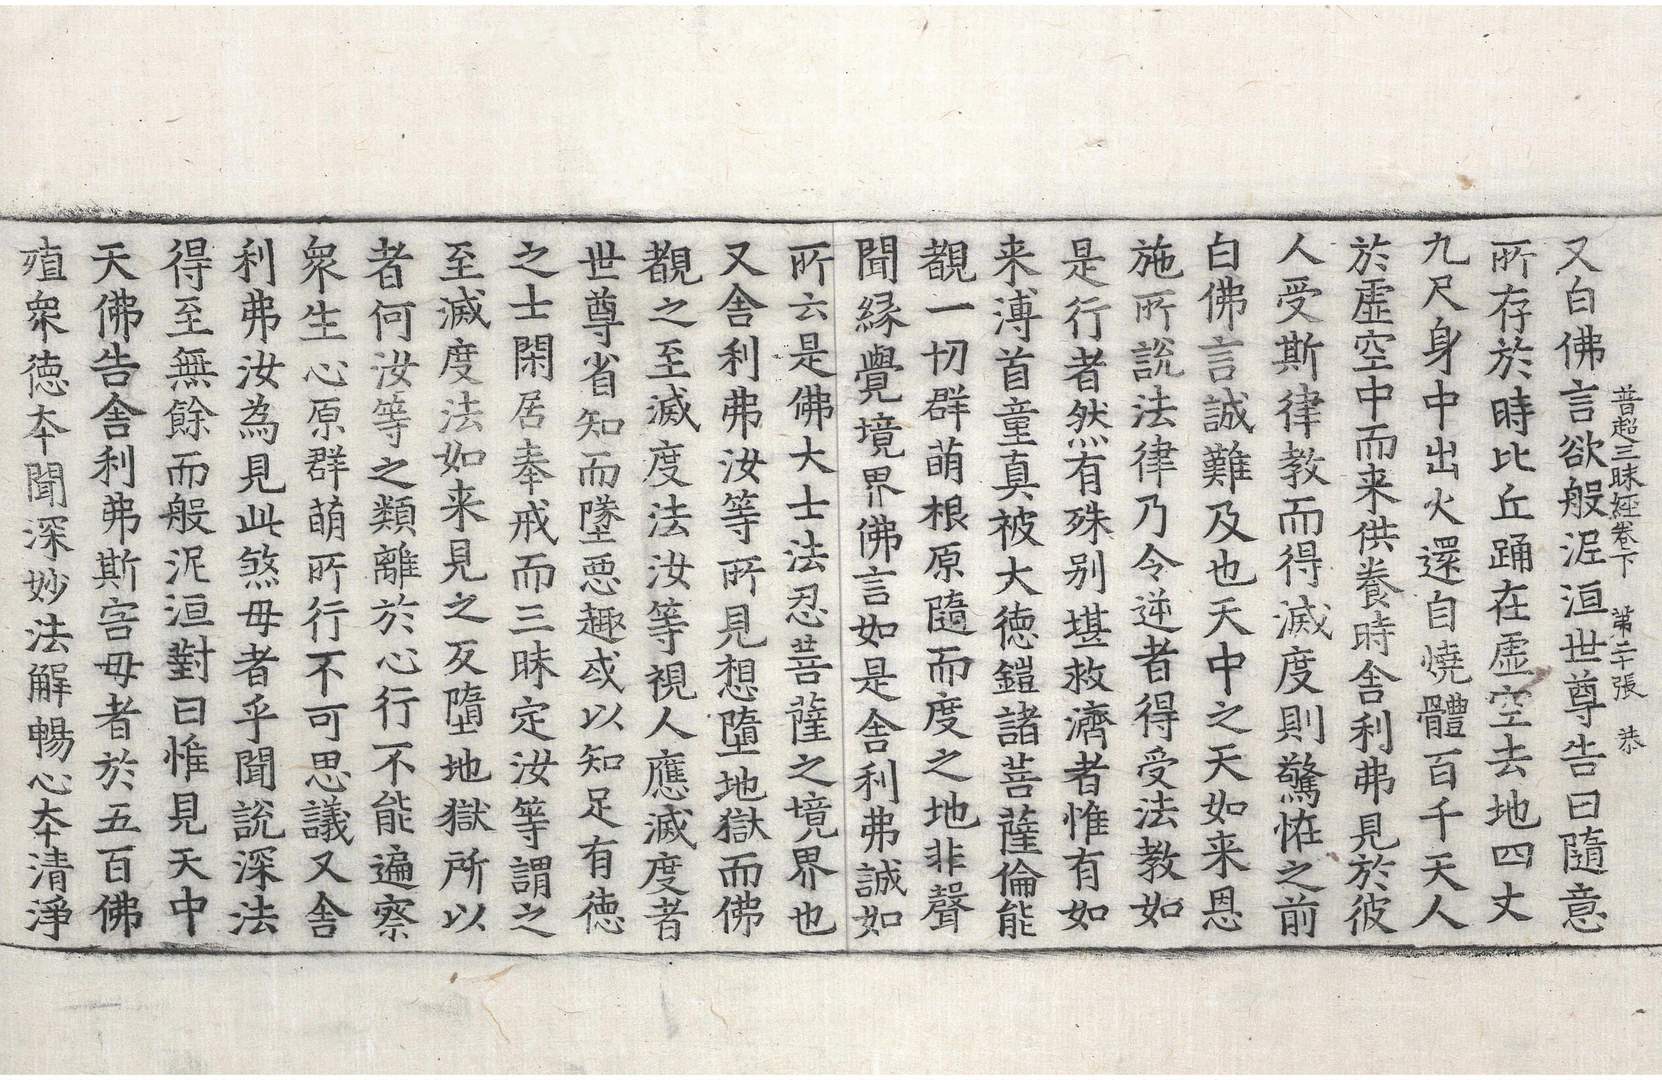 普超三昧經卷下　第二十張　恭
又白佛言欲般泥洹世尊告曰隨意
所存於時比丘踊在虛空去地四丈
九尺身中出火還自燒體百千天人
於虛空中而来供養時舍利弗見於彼
人受斯律教而得滅度則驚恠之前
白佛言誠難及也天中之天如来恩
施所說法律乃令逆者得受法教如
是行者然有殊别堪救濟者惟有如
来溥首童真被大德鎧諸菩薩倫能
覩一切群萌根原隨而度之地非聲
聞縁覺境界佛言如是舍利弗誠如
所云是佛大士法忍菩薩之境界也
又舍利弗汝等所見想墮地獄而佛
覩之至滅度法汝等視人應滅度者
世尊省知而墜惡趣或以知足有德
之士閑居奉戒而三昧定汝等謂之
至滅度法如来見之反墮地獄所以
者何汝等之類離於心行不能遍察
衆生心原群萌所行不可思議又舍
利弗汝為見此煞母者乎聞說深法
得至無餘而般泥洹對曰惟見天中
天佛告舍利弗斯害母者於五百佛
殖衆德本聞深妙法解暢心本清淨